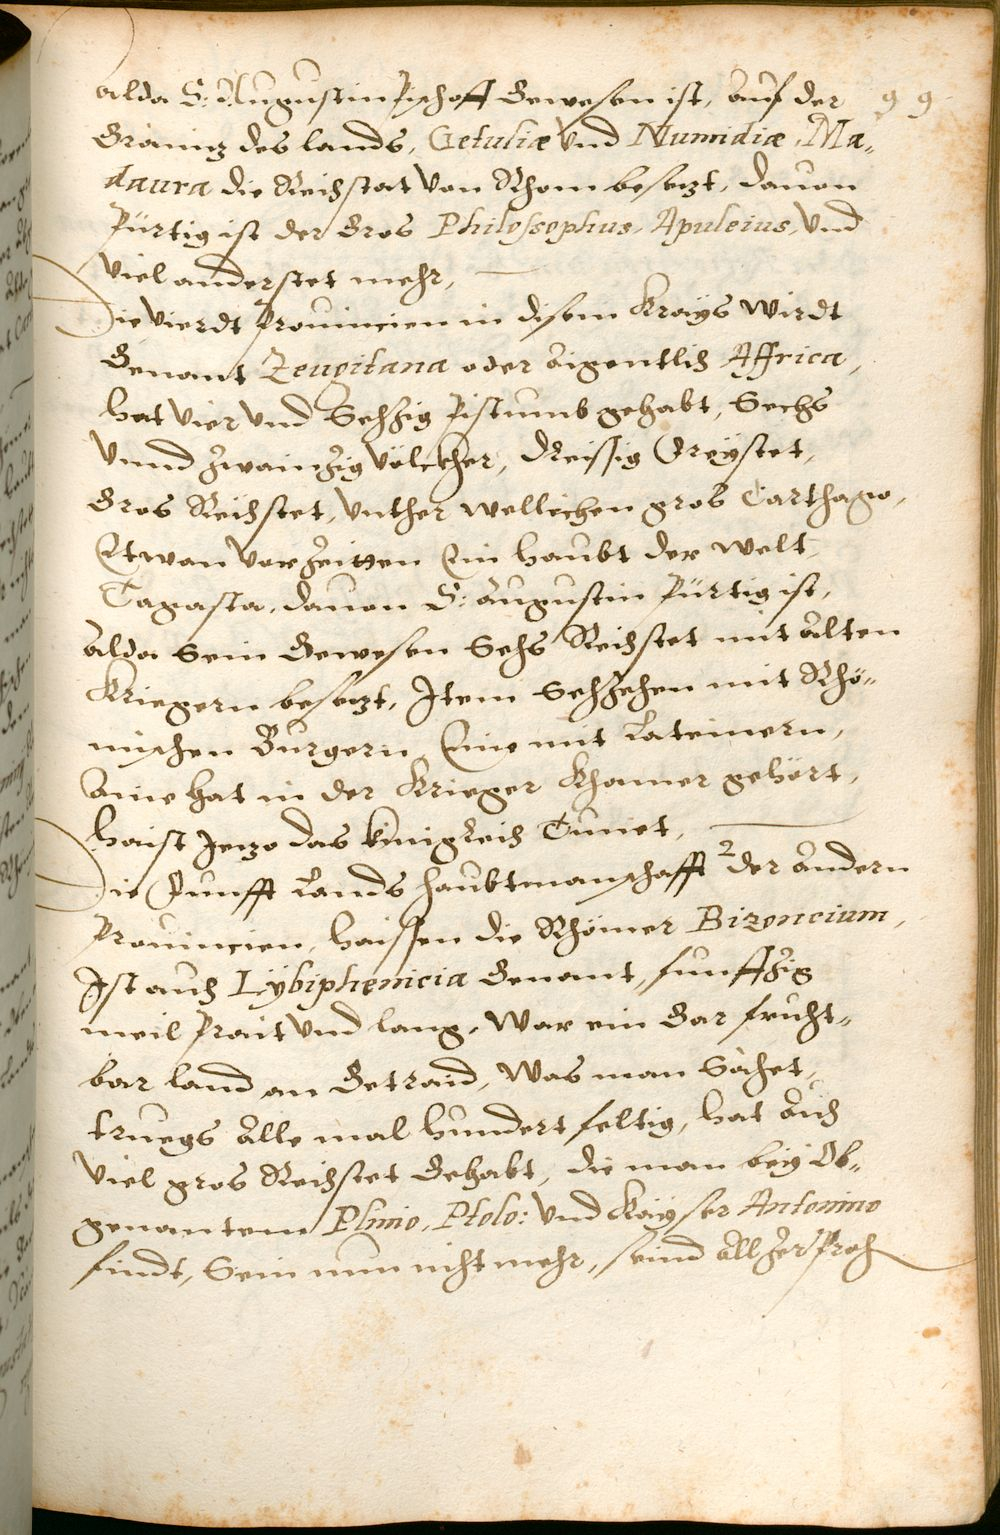 alda S: Augustin Pischoff Gewesen ist, Auf der 99
Gräniz des lands, Getuliæ Vnd Numidiæ, Ma„
daura die Reichstat Von Rhom besezt, dauon
Pürtig ist der Gros Philossophus, Apuleius, Vnd
Viel anderstet mehr,
Die Vierdt Prouincien in disem Krays Wirdt
Genant Zeugitana oder Aigentlich Affrica,
hat Vier Vnd Sechzig Pistumb gehabt, Sechs
Vnnd Zwainzig Völckher, Dreissig Freystet,
Gros Reichstet, Vnther wellichen gros Carthago,
Etwan Vor Zeitten Ein haubt der Welt,
Tagasta, dauon S: Augustin Pürtig ist,
Alda Sein Gewesen Sechs Reichstet mit Alten
Kriegern besezt, Item Sechzehen mit Rhö„
mischen Burgern, Eine mit Lateinern,
Aine hat in der Krieger Khamer gehört,
haist Jezo das Königreich Tunet,
Die Funfft Lands haubtmanschafft 2 der Andern
Prouincien, haissen die Rhömer Bizoncium,
Ist auch Lÿbiphenicia Genant, funffzig
meil Prait Vnd lang, War ein Gar frucht„
bar land an Getraid, Was man Sähet,
truegs Alle mal hundert feltig, hat Auch
Viel gros Reichstet Gehabt, die man beÿ Ob„
genantem Plinio, Ptolo: Vnd Kayser Antonino
findt, Sein nun nicht mehr, seind All Zerproch